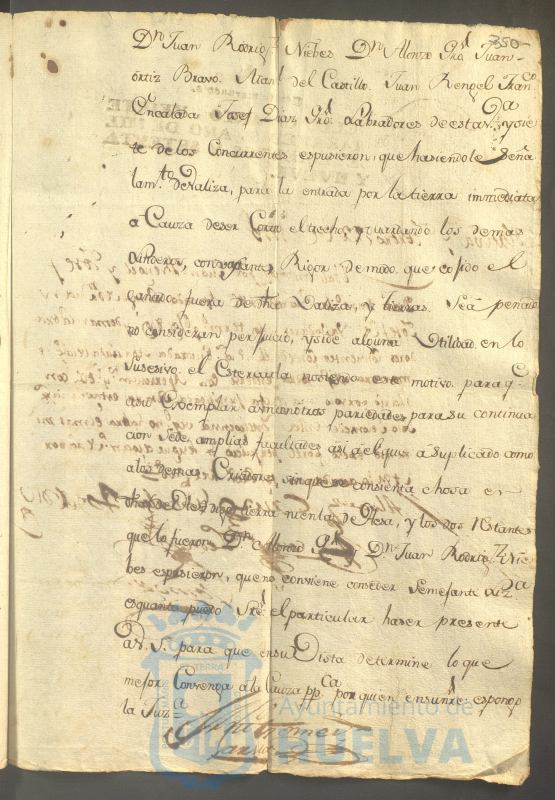 350
Dn Juan Rodrigz Niebes Dn Alonzo Grl Juan
ortiz Bravo. Manl del Castillo. Juan Rengel Franco
Encalada Josef Diaz Labradores de esta Va, y sie
te de los Concurrentes espusieron, que hasiendole Seña
lamto de Valiza, para la entrada por la tierra immediata
a Cauza de ser Corto el trecho, y guardando los demas
Linderos, con Rigor de modo, que cojido el
Ganado fuera de dha Valiza, y tierras. Sea penado
no consideran perjuicio, y si de alguna Utilidad, en lo
Susesivo, el Estercarla no siendo este motivo, para q
asu Exemplar asuman otros pariedades para su continua
cion Se de amplias facultades asi a el que a suplicado como
a los demas Criadores, sin que se consienta choza en
tierra mientas de Mesa, y los dos Restantes
que lo fueron Dn Alonzo Grl y Dn Juan Rodrigz Nie
bes espusieron, que no conviene conseder Semejante
es quanto puedo Sre el particular haser presente
a V. S. para que en su Vista determine lo que
mejor Convenga a la Cauza ppca por quien en su nre espongo
la Juza
Ayuntamiento de
HUELVA